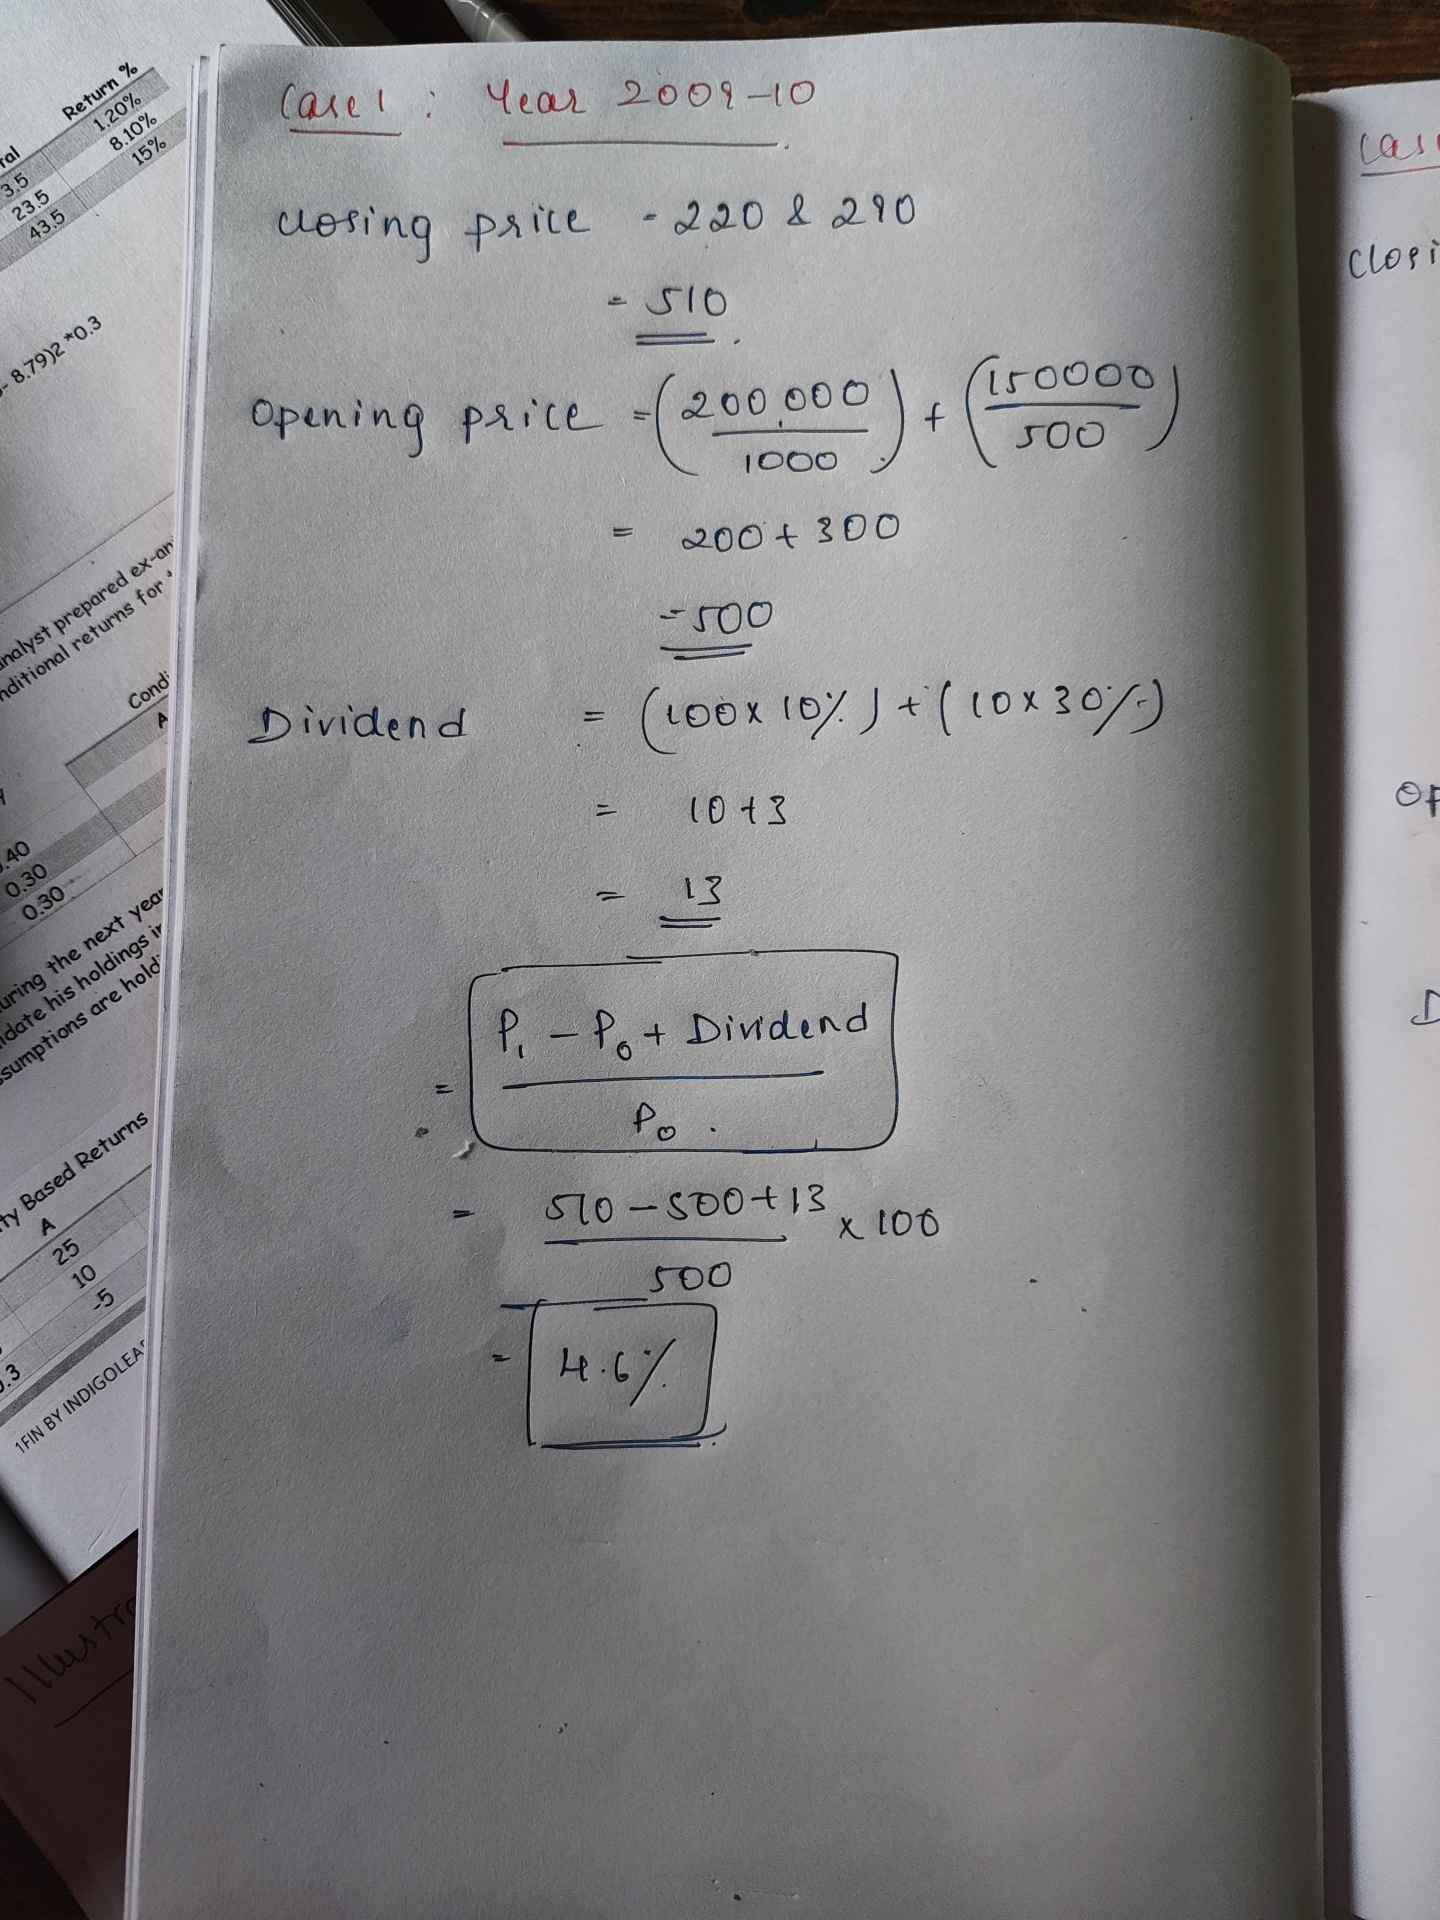 ral Return %
3.5 1.20%
23.5 8.10%
43.5 15%
- 8.79)2 *0.3
analyst prepared
nditional returns for
Condi
A
.40
0.30
0.30
uring the next year
idate his holdings
ssumptions are hold
ty Based Returns
A
25
10
-5
0.3
1FIN BY INDIGOLEA
Illustra
Case 1 : Year 2009-10
closing price - 220 & 290
= 510
Opening price = (200,000 / 1000) + (150000 / 500)
= 200 + 300
= 500
Dividend = (100 x 10%) + (10 x 30%)
= 10 + 3
= 13
= P₁ - P₀ + Dividend
P₀
= 510 - 500 + 13 x 100
500
= 4.6%
Cas
Closi
OP
D